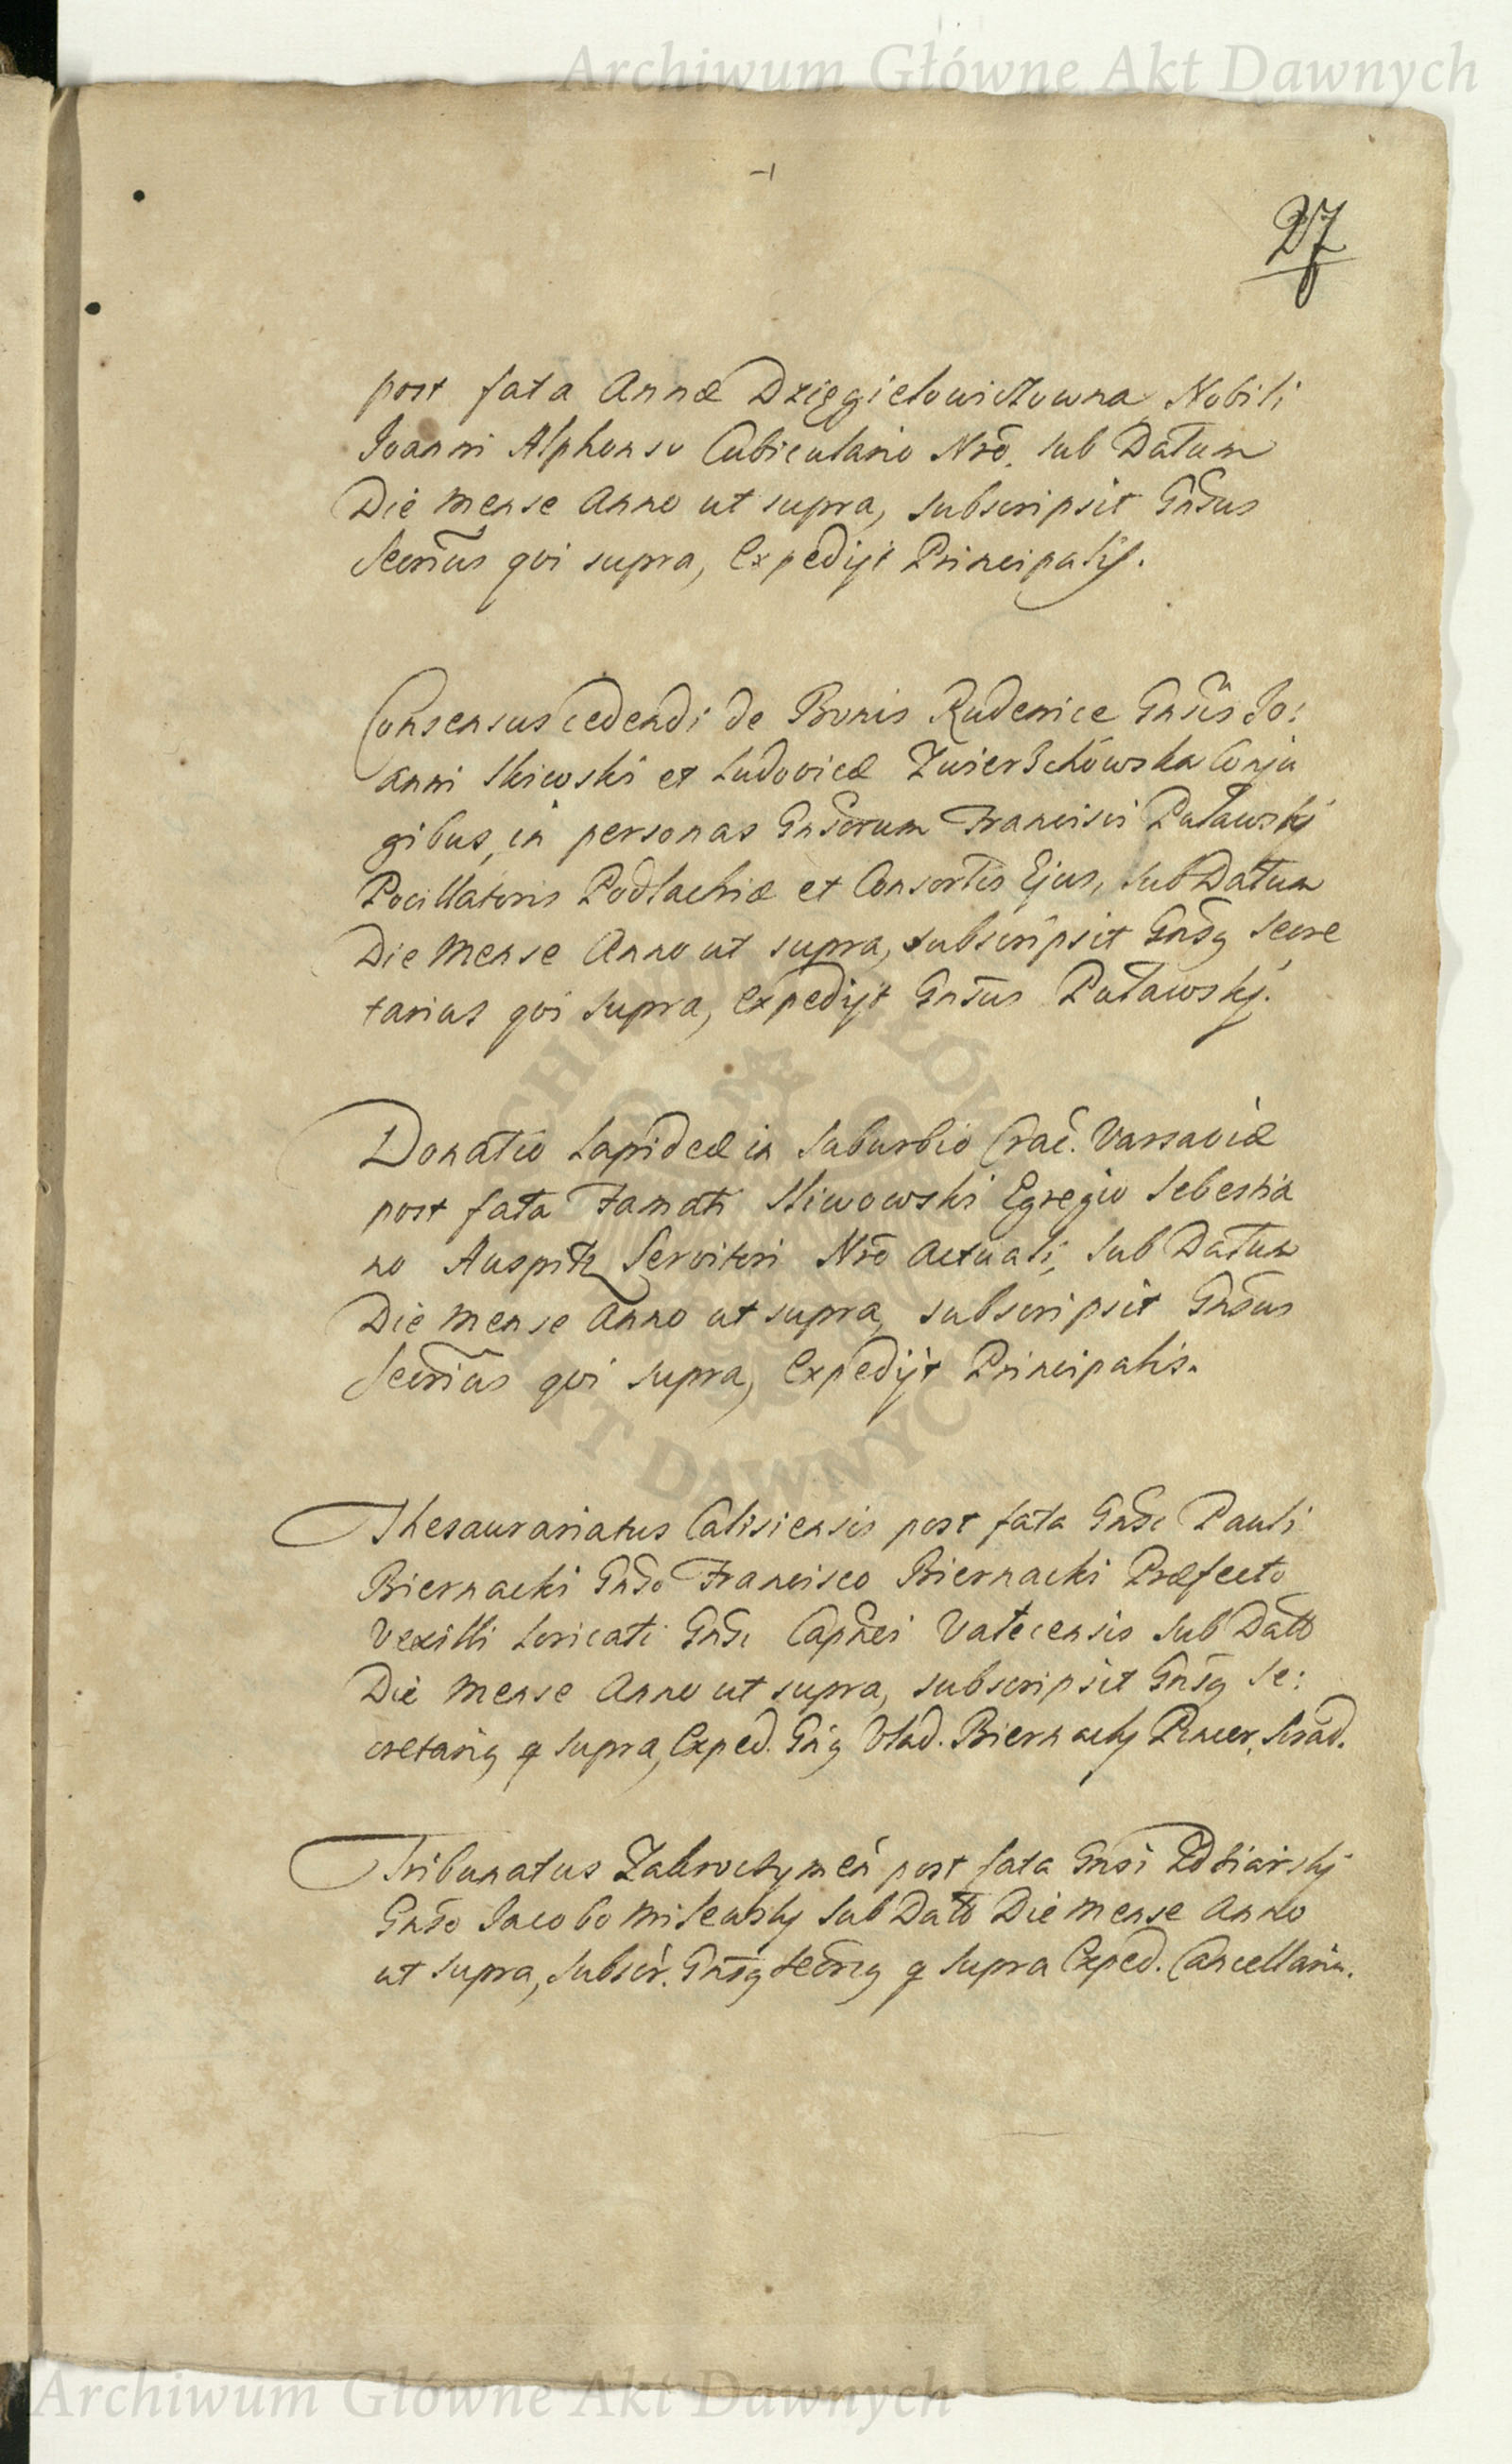 Archiwum Główne Akt Dawnych
27
post fata Annæ Dzięgielowiczowna Nobili
Joanni Alphonso Cubiculario Nrõ. sub Datum
Die Mense Anno ut supra, subscripsit Gnsus
Secrius qvi supra, Expedijt Principalis.
Consensus cedendi de Bonis Rudenice Gnsis Jo:
anni Skiwski et Ludovicæ Conju
gibus, in personas Gnsorum Francisci Puławskj
Pocillatoris Podlachiæ et Consortis Ejus, sub Datum
Die Mense Anno ut supra, subscripsit Gnsq Secre
tarius qvi supra, Expedijt Gnsus Puławskj.
Donatio Lapideæ in Suburbio Crac. Varsaviæ
post fata Famati Sliwowski Egregio Sebestia
no Auspitz Servitori Nrõ Actuali, sub Datum
Die Mense Anno ut supra, subscripsit Gnsus
Secrius qvi supra, Expedijt Principalis.
Thesaurariatus Calisiensis post fata Gnsi Pauli
Biernacki Gnso Francisco Biernacki Præfecto
Vexilli Loricati Gnsi Capnei Valecensis sub Datto
Die Mense Anno ut supra, subscripsit Gnsq Se:
cretariq q supra, Exped. Gnq Vlad. Biernackj Pincer. Sirad.
Tribunatus Zakroczymeń post fata Gnsi Zdziarskj
Gnso Jacobo Milewskj sub Datto Die Mense Anno
ut supra, subscr. Gnsq Secriq q supra Exped. Cancellaria.
Archiwum Główne Akt Dawnych